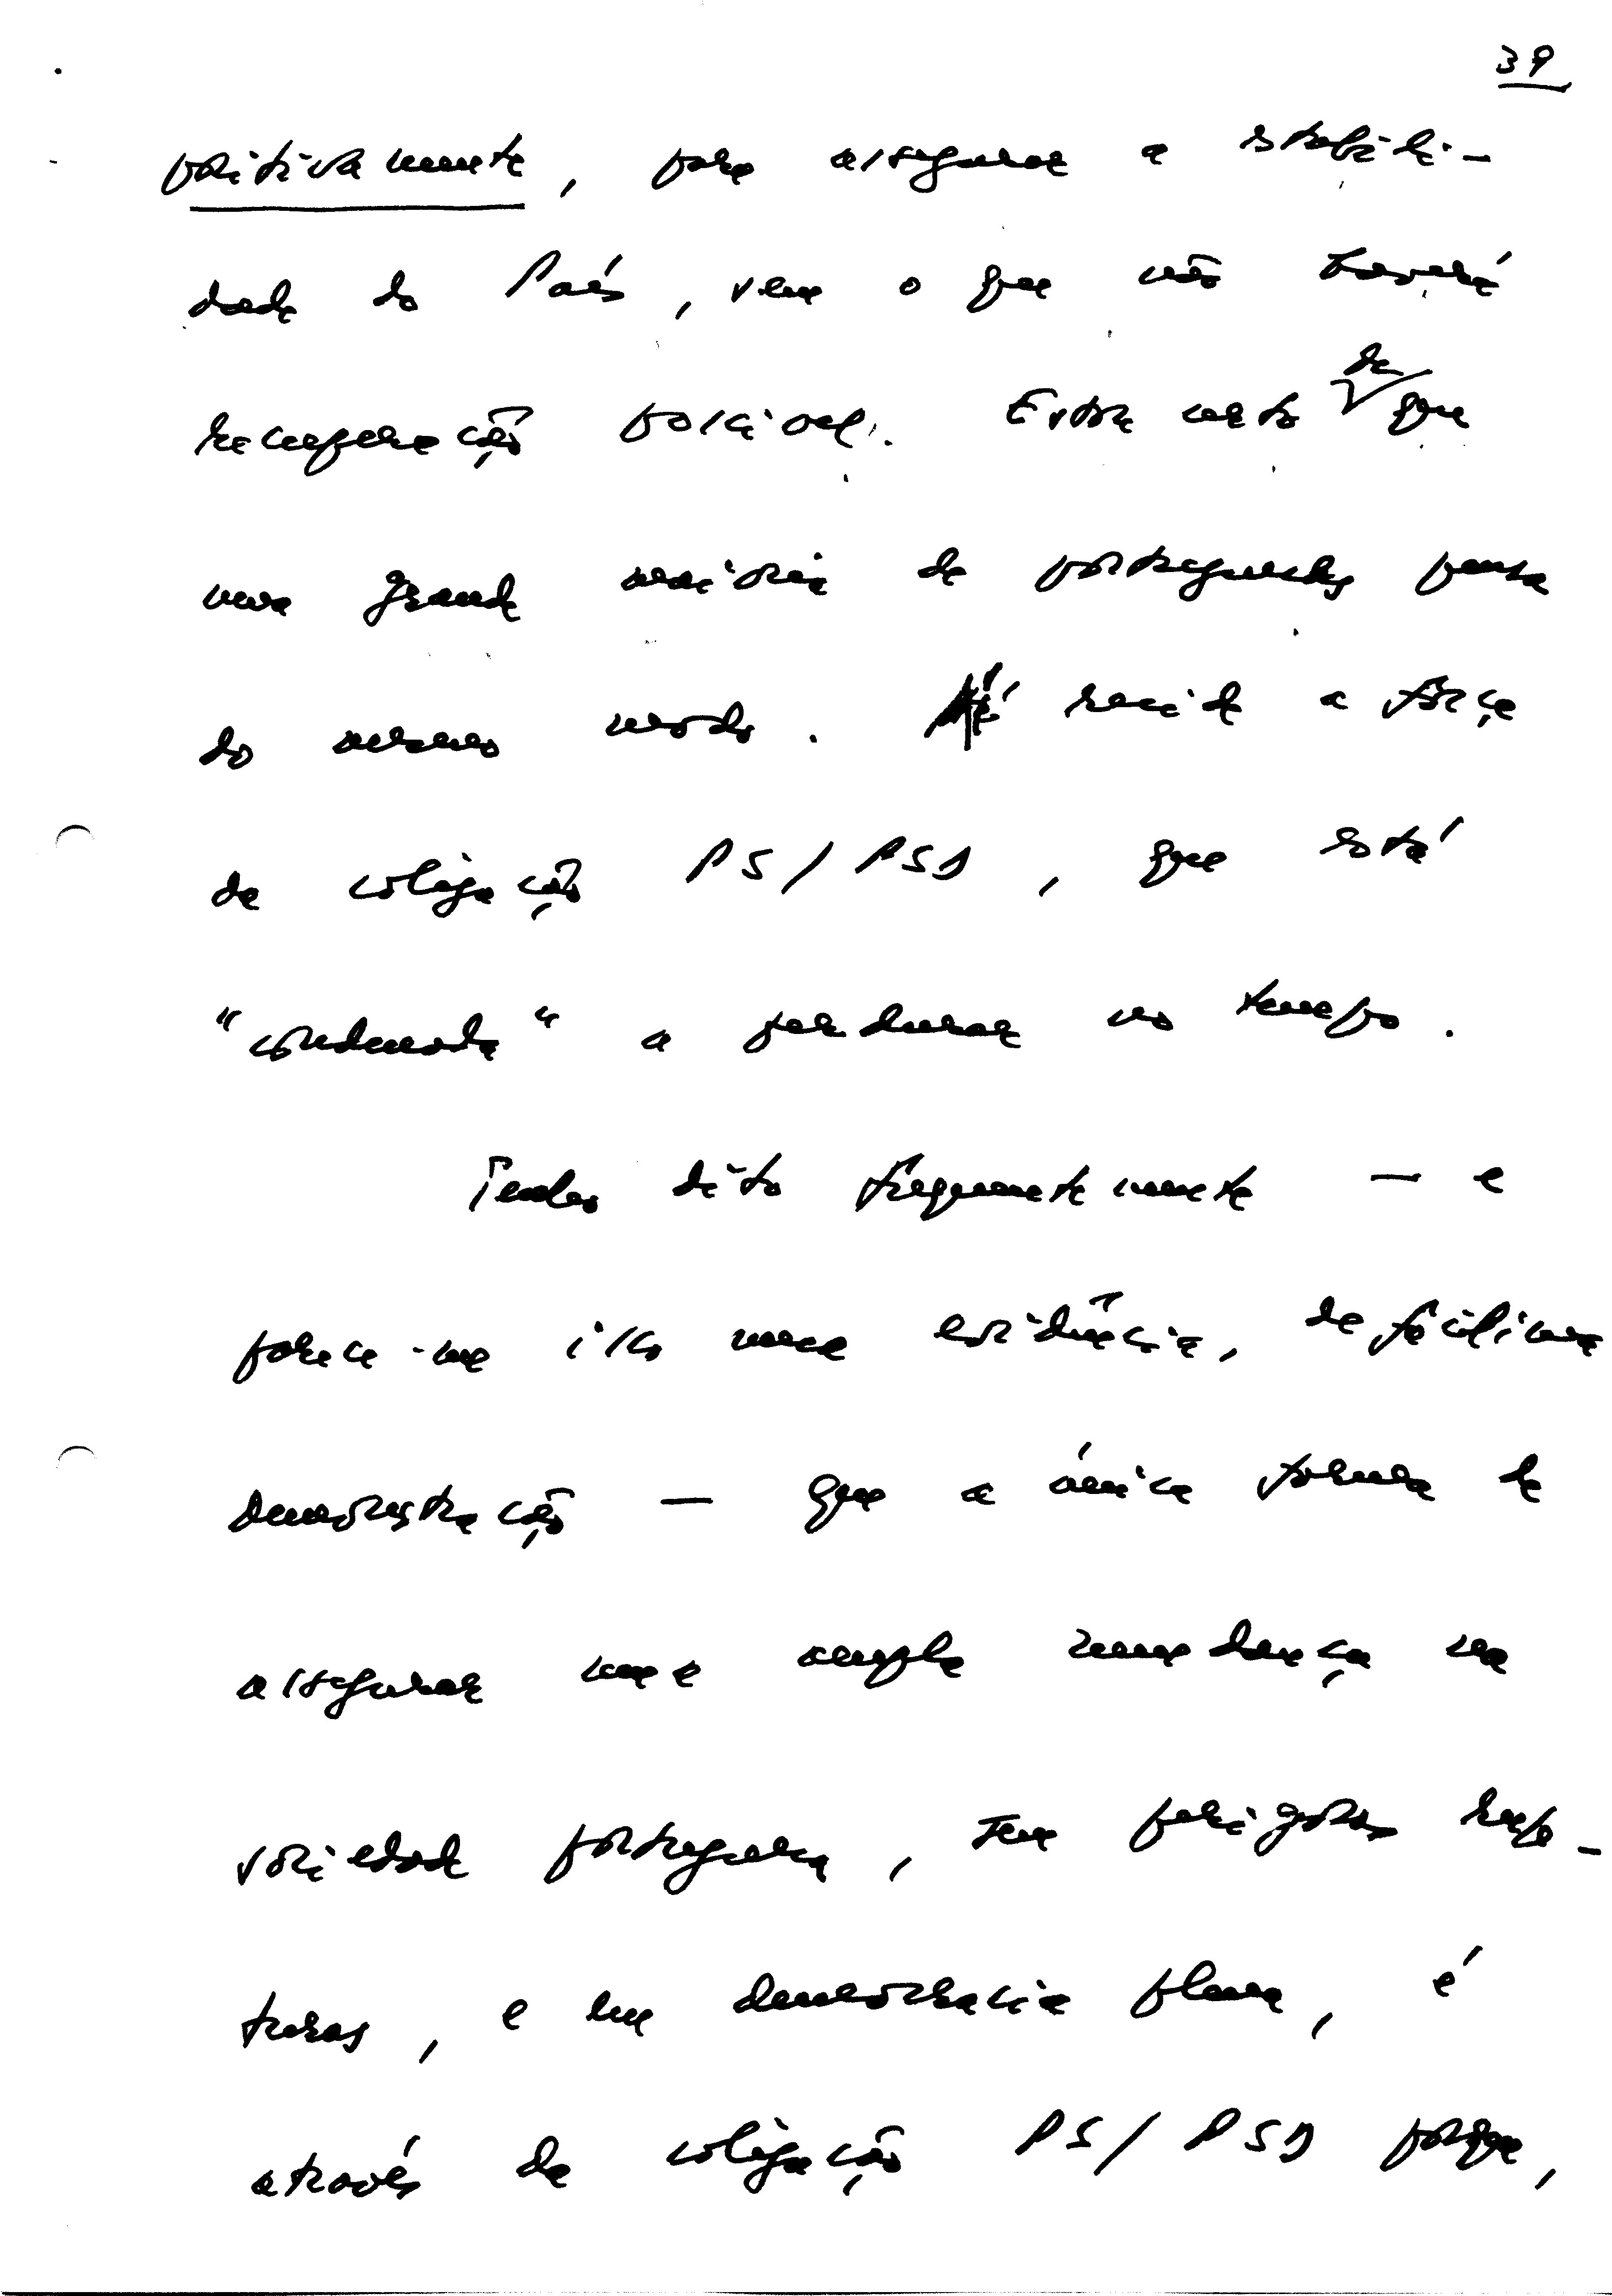 39
positivamente, para assegurar a estabili-
dade do País, sem o que não haverá
recuperação possível. Estou certo de que
uma grande maioria de portugueses pensa
do mesmo modo. Aí reside a força
da coligação PS/PSD, que está
"condenada" a perdurar no tempo.
Tenho dito frequentemente — e
parece-me isso uma evidência, de facílima
demonstração — que a única forma de
assegurar uma ampla mudança na
sociedade portuguesa, sem perigosas rup-
turas, e em democracia plena, é
através da coligação PS/PSD porque,